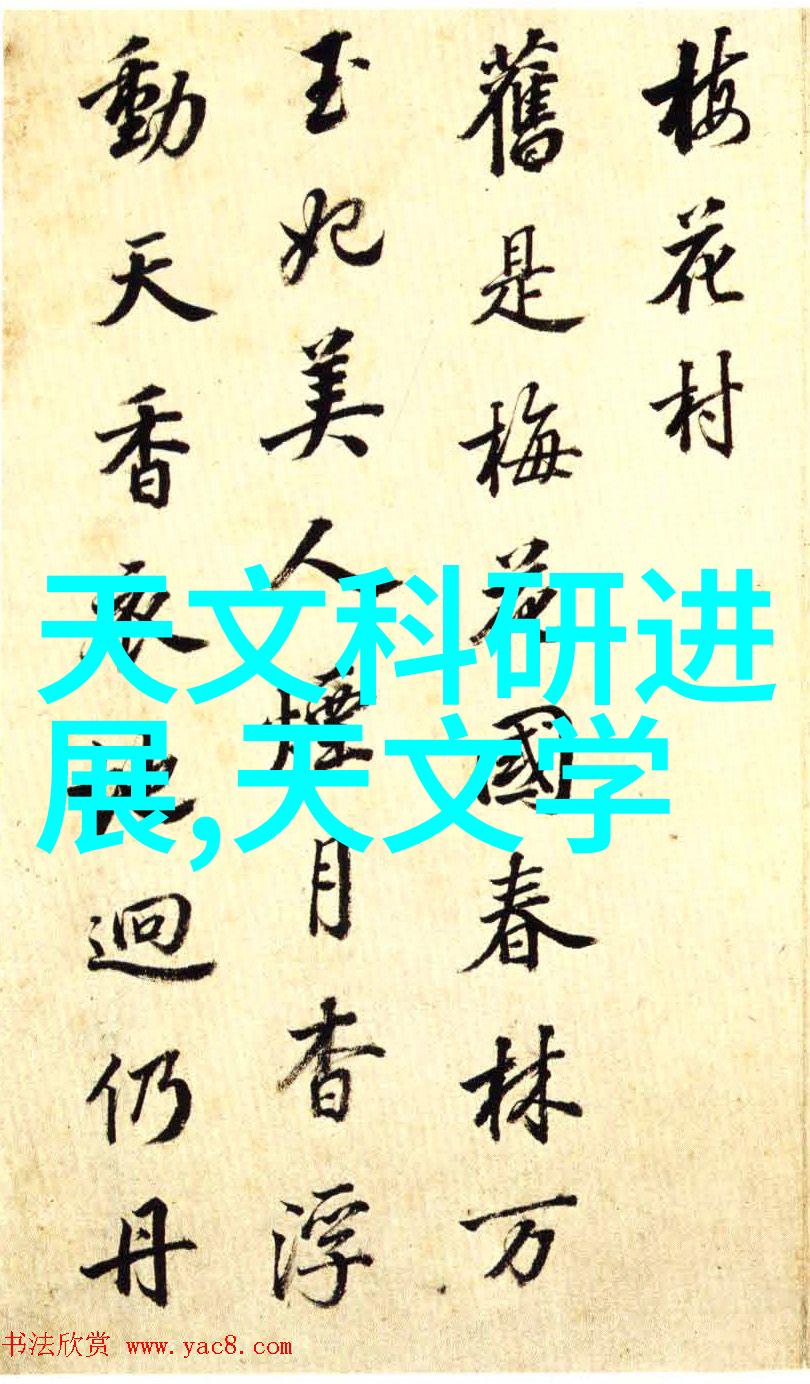 梅花村
舊是梅花國春林万
玉妃美人煙月香浮
動天香夜迴仍丹
天文科研进
展,天文学
书法欣赏 www.yac8.com